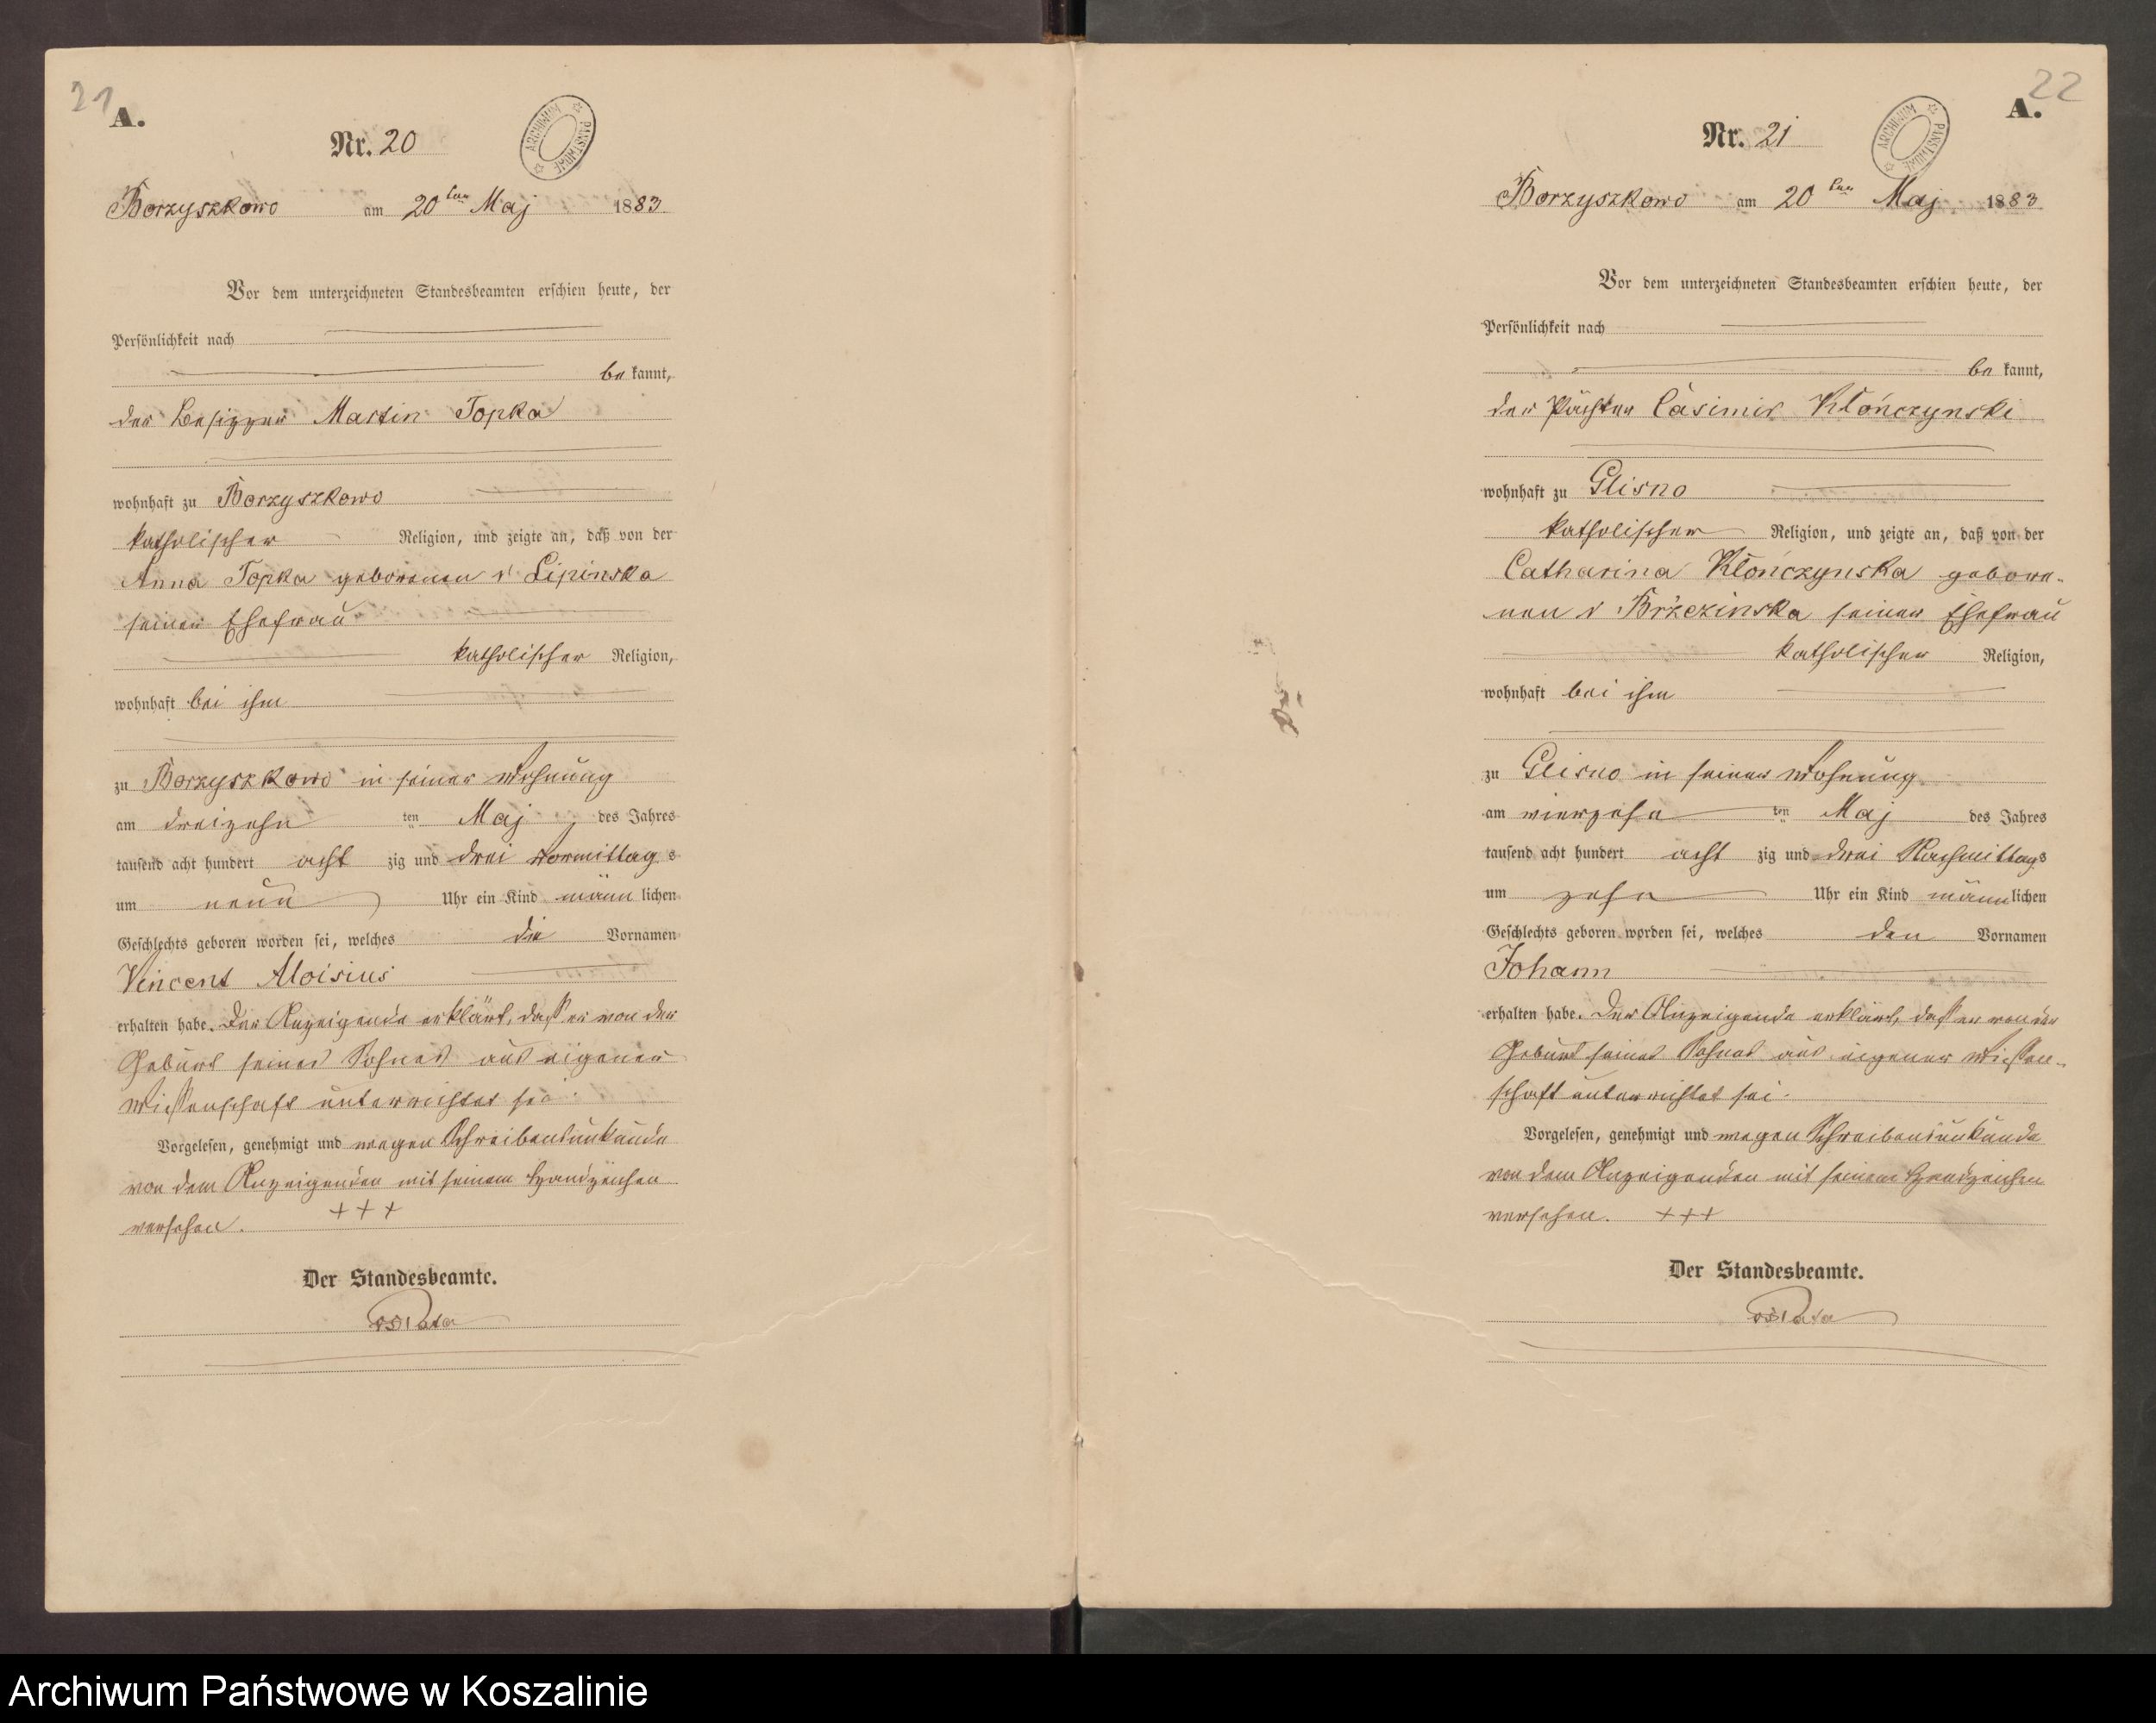 21
A.
Nr. 20
ARCHIWUM PAŃSTWOWE
Borzyszkowo am 20ten Maj 1883
Vor dem unterzeichneten Standesbeamten erschien heute, der
Persönlichkeit nach
be kannt,
der Besitzer Martin Topka
wohnhaft zu Borzyszkowo
katholischer Religion, und zeigte an, daß von der
Anna Topka geborenen v Lipinska
seiner Ehefrau
katholischer Religion,
wohnhaft bei ihm
zu Borzyszkowo in seiner Wohnung
am dreizehn ten Maj des Jahres
tausend acht hundert acht zig und drei Vormittag s
um neun Uhr ein Kind männ lichen
Geschlechts geboren worden sei, welches die Vornamen
Vincent Aloisius
erhalten habe. Der Anzeigende erklärt, daß er von der
Geburt seines Sohnes aus eigener
Wissenschaft unterrichtet sei.
Vorgelesen, genehmigt und wegen Schreibensunkunde
von dem Anzeigenden mit seinem Handzeichen
versehen. +++
Der Standesbeamte.
22
A.
Nr. 21
ARCHIWUM PAŃSTWOWE
Borzyszkowo am 20ten Maj 1883
Vor dem unterzeichneten Standesbeamten erschien heute, der
Persönlichkeit nach
be kannt,
der Pächter Casimir Kłonczynski
wohnhaft zu Glisno
katholischer Religion, und zeigte an, daß von der
Catharina Kłonczynska gebore-
nen v Brzezinska seiner Ehefrau
katholischer Religion,
wohnhaft bei ihm
zu Glisno in seiner Wohnung
am vierzehn ten Maj des Jahres
tausend acht hundert acht zig und drei Nachmittags
um zehn Uhr ein Kind männ lichen
Geschlechts geboren worden sei, welches den Vornamen
Johann
erhalten habe. Der Anzeigende erklärt, daß er von der
Geburt seines Sohnes aus eigener Wissen-
schaft unterrichtet sei.
Vorgelesen, genehmigt und wegen Schreibensunkunde
von dem Anzeigenden mit seinem Handzeichen
versehen. +++
Der Standesbeamte.
Archiwum Państwowe w Koszalinie